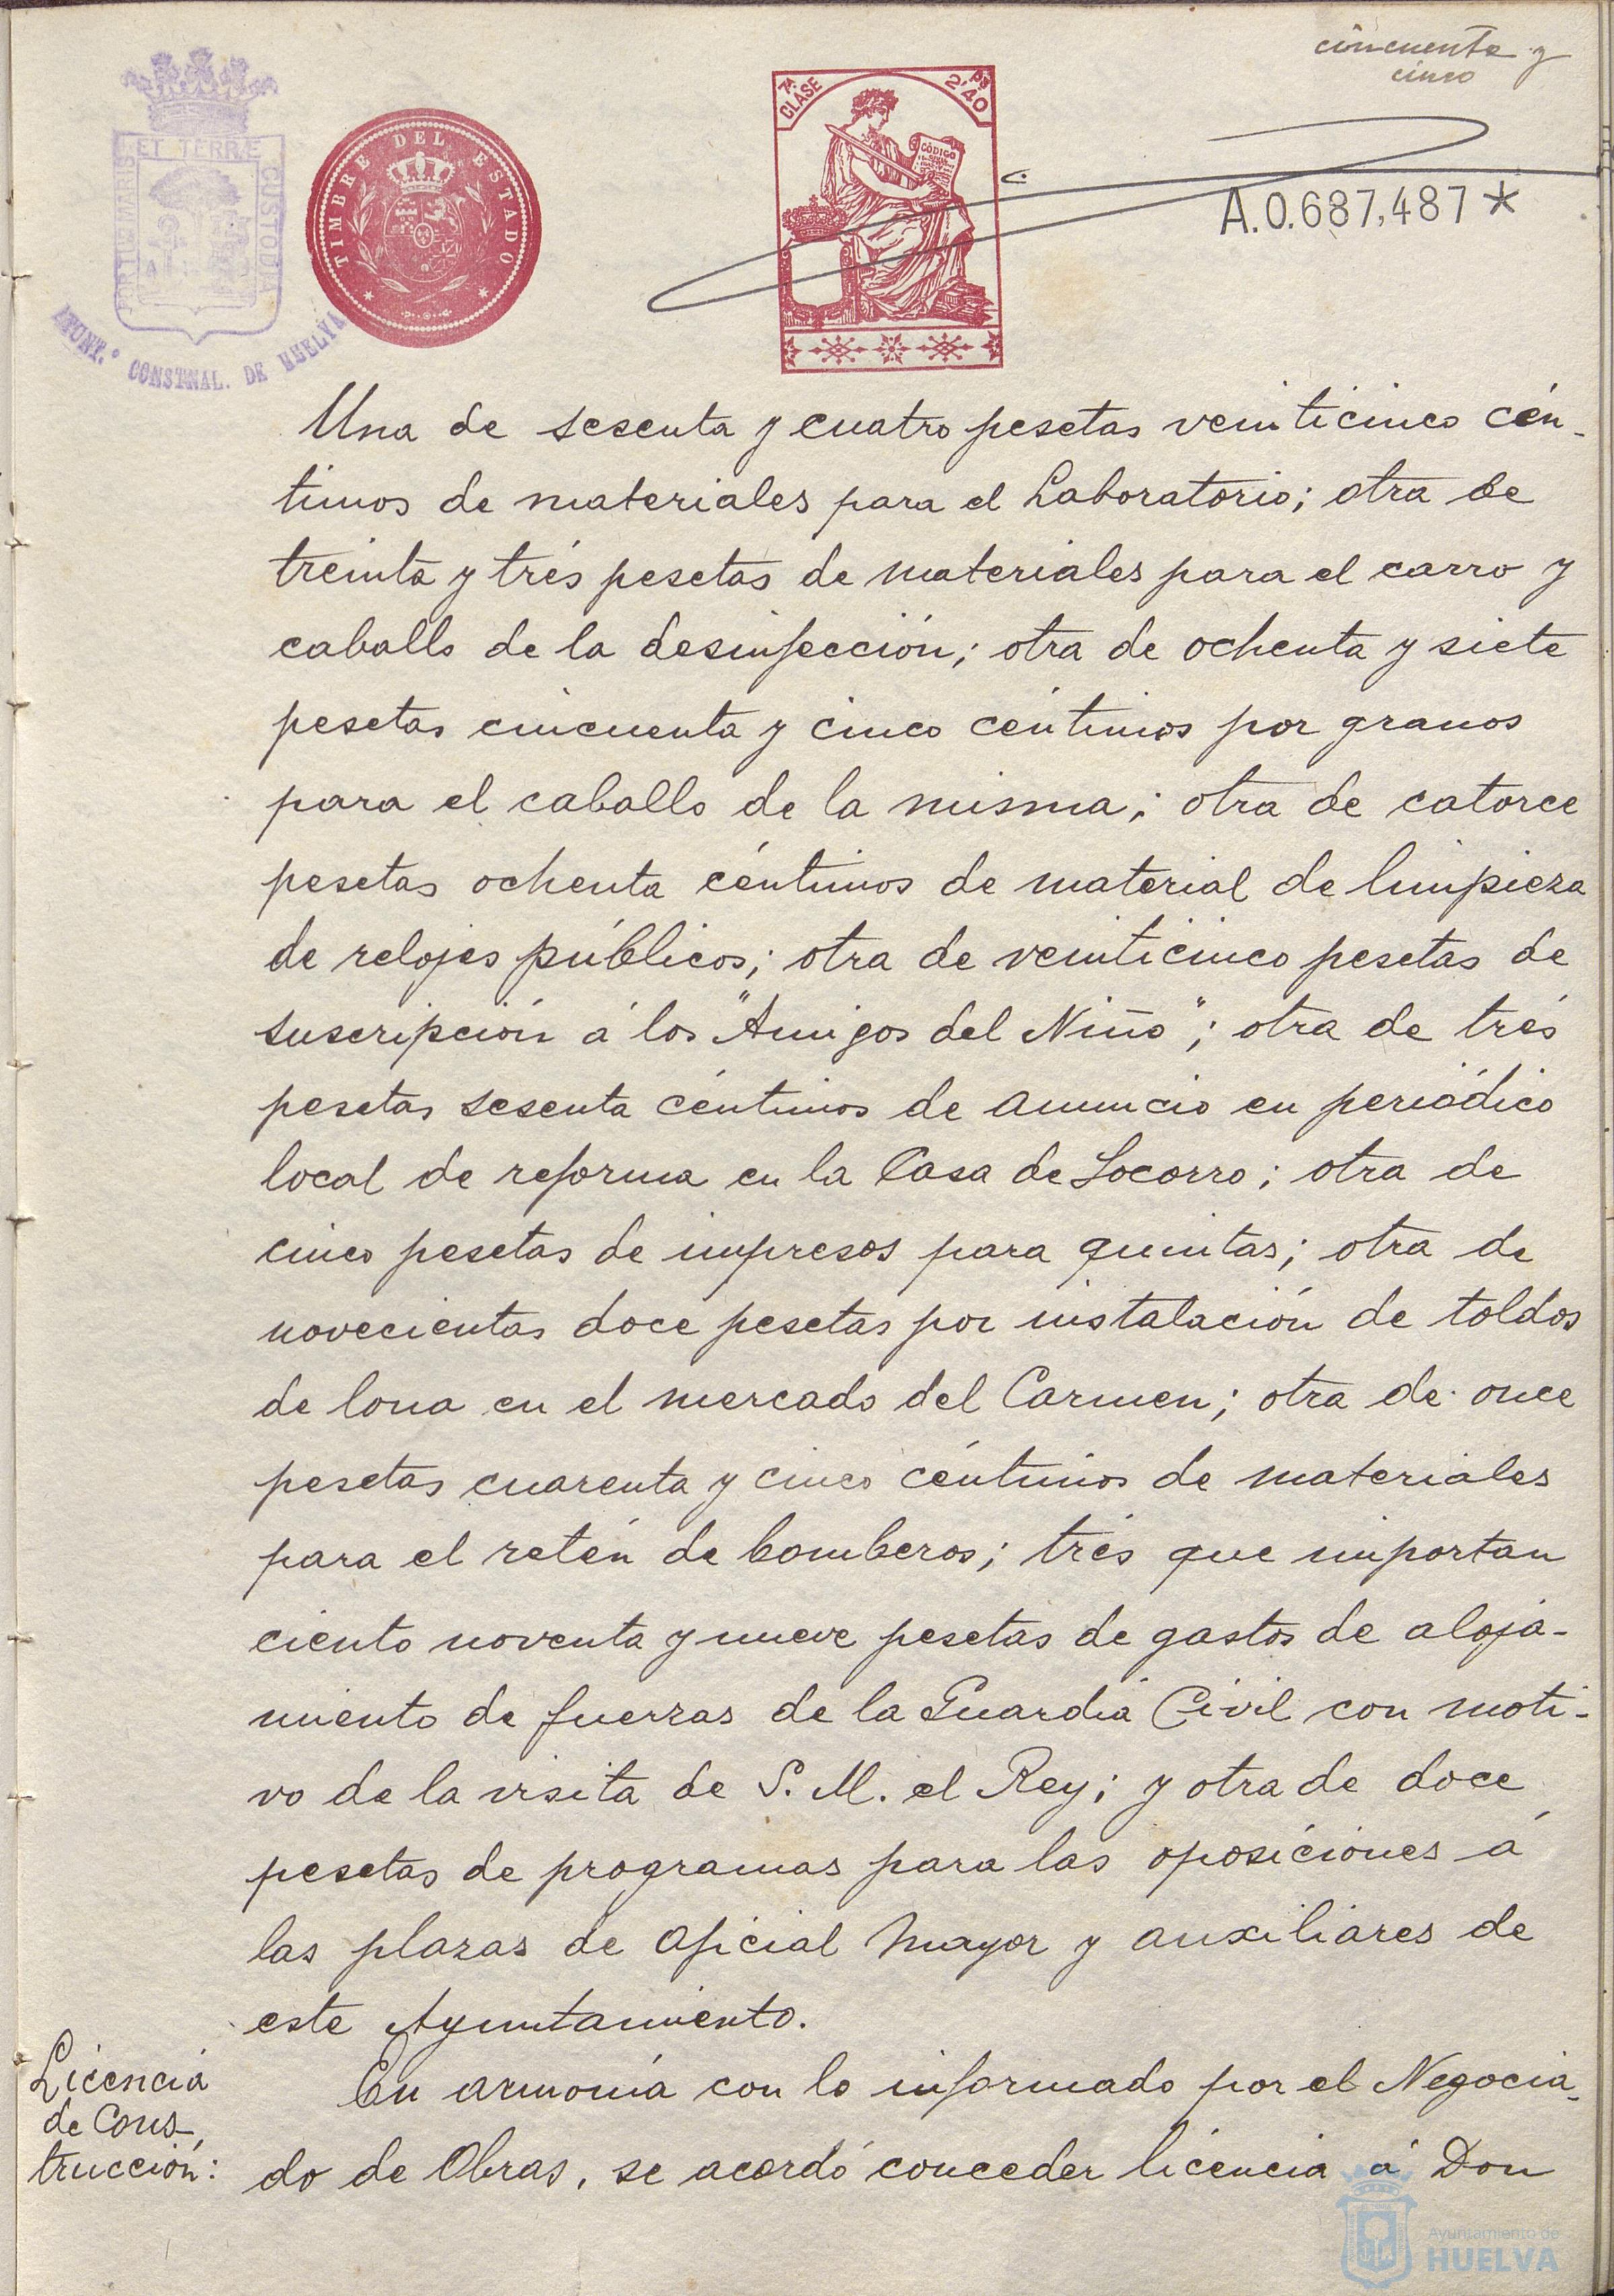 cincuenta y
cinco
PORTUS MARIS ET TERRÆ CUSTODIA
AYUNT.º CONSTNAL. DE HUELVA
TIMBRE DEL ESTADO
7ª CLASE
2'40
CÓDIGO
A.0.687,487*
Una de sesenta y cuatro pesetas veinticinco cén-
timos de materiales para el Laboratorio; otra de
treinta y trés pesetas de materiales para el carro y
caballo de la desinfección; otra de ochenta y siete
pesetas cincuenta y cinco céntimos por granos
para el caballo de la misma; otra de catorce
pesetas ochenta céntimos de material de limpieza
de relojes públicos; otra de veinticinco pesetas de
suscripción á los "Amigos del Niño"; otra de trés
pesetas sesenta céntimos de anuncio en periódico
local de reforma en la Casa de Socorro; otra de
cinco pesetas de impresos para quintas; otra de
novecientas doce pesetas por instalación de toldos
de lona en el mercado del Carmen; otra de once
pesetas cuarenta y cinco céntimos de materiales
para el retén de bomberos; trés que importan
ciento noventa y nueve pesetas de gastos de aloja-
miento de fuerzas de la Guardia Civil con moti-
vo de la visita de S. M. el Rey; y otra de doce
pesetas de programas para las oposiciones á
las plazas de oficial mayor y auxiliares de
este Ayuntamiento.
Licencia
de Cons-
trucción:
En armonía con lo informado por el Negocia-
do de Obras, se acordó conceder licencia á Don
Ayuntamiento de
HUELVA